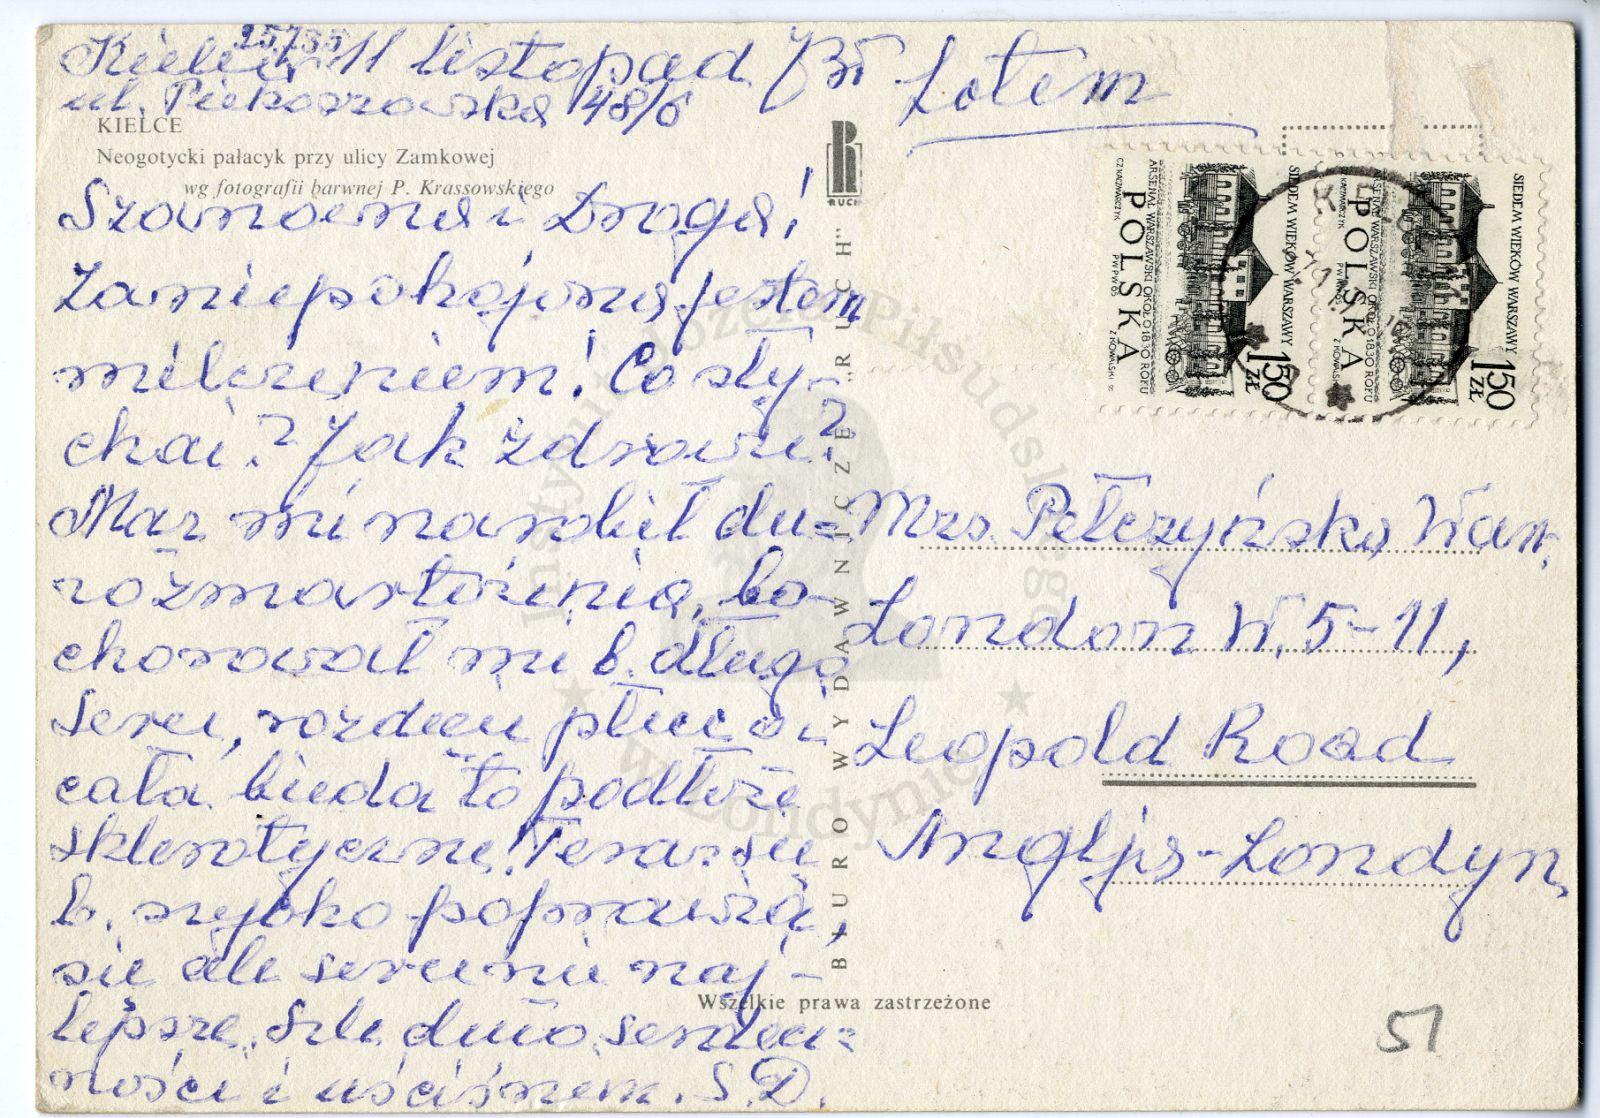 25735
Kielce 11 listopad
Lotem
ul. Piekoszowska 48/6
KIELCE
Neogotycki pałacyk przy ulicy Zamkowej
wg fotografii barwnej P. Krassowskiego
Szanowna i Droga!
Zaniepokojona jestem
milczeniem! Co sły-
chać? Jak zdrowie?
Mąż mi narobił du=
zmartwienia, bo
chorował mi b. długo
Serce, płuc a
cała bieda to podłoże
sklerotyczne! Teraz się
b. szybko poprawia,
się ale serce nie naj-
lepsze. Ślę dużo serdecz=
ności i uściśnień. S.D.
RUCH
BIURO WYDAWNICZE „RUCH”
Wszelkie prawa zastrzeżone
SIEDEM WIEKÓW WARSZAWY
1.50 ZŁ
ARSENAŁ WARSZAWSKI OKOŁO 1830 ROKU
POLSKA
CZ.KAŹMARCZYK PWPW65 Z.KOWALSKI
SIEDEM WIEKÓW WARSZAWY
1.50 ZŁ
ARSENAŁ WARSZAWSKI OKOŁO 1830 ROKU
POLSKA
Mrs. Pełczyńska Wan.
London W. 5-11,
Leopold Road
Anglja-Londyn
51
Instytut Józefa Piłsudskiego
w Londynie